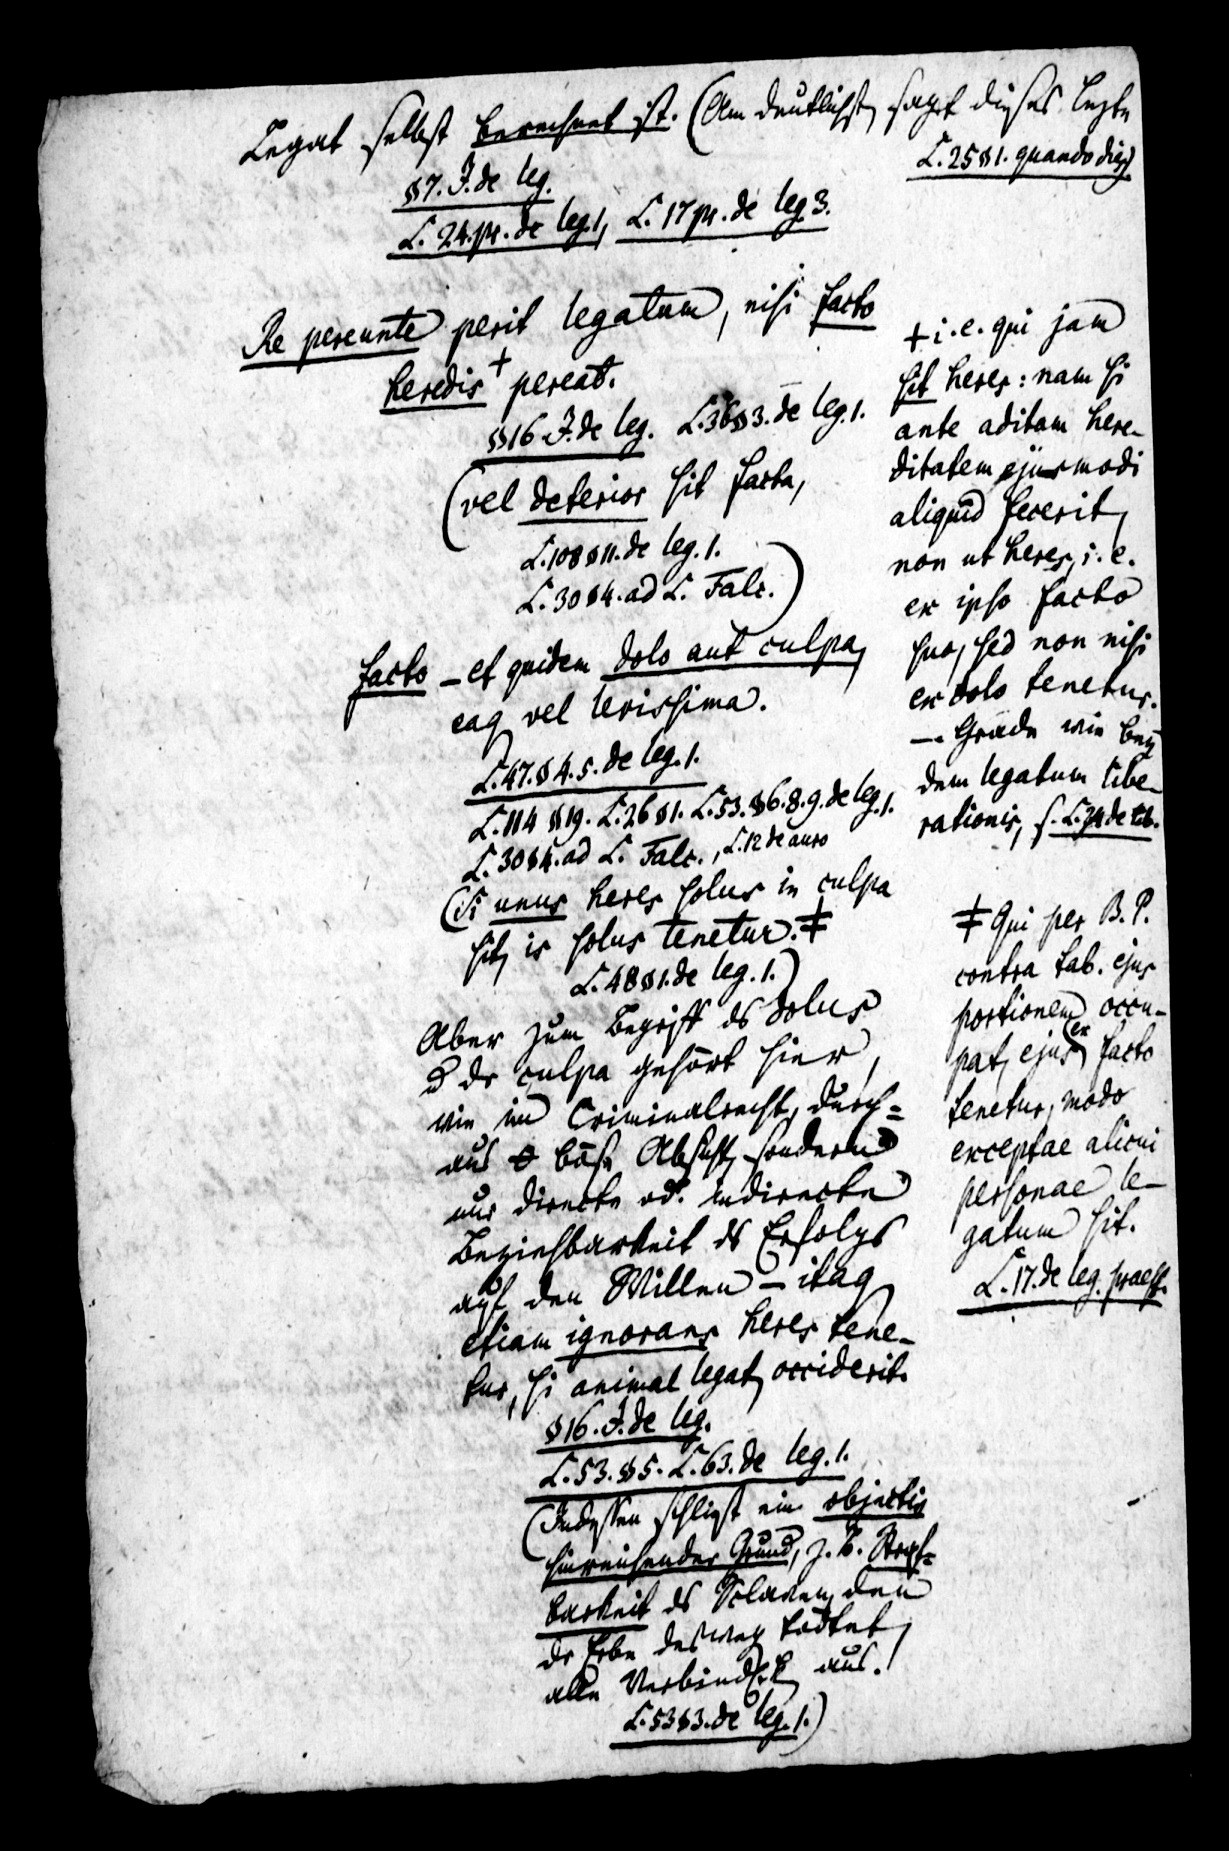 Legat selbst berechnet ist. (Am deutlichsten sagt dieses letzte
L. 25 § 1. quando dies)
§ 7. J. de leg.
L. 24. pr. de leg. 1, L. 17 pr. de leg. 3.
Re pereunte perit legatum, nisi facto
heredis + pereat.
§ 16 J. de leg. L. 36 § 3. de leg. 1.
(vel deterior sit facta,
L. 108 § 11. de leg. 1.
L. 30 § 4. ad L. Falc.)
facto – et quidem dolo aut culpa,
eaq vel levissima.
L. 47. § 4. 5. de leg. 1.
L. 114 § 19. L. 26 § 1. L. 53. § 6. 8. 9. de leg. 1.
L. 30 § 4. ad L. Falc., L. 12 de auro
(Si unus heres solus in culpa
sit, is solus tenetur. ‡
L. 48 § 1. de leg. 1.)
Aber zum Begriff ds dolus
dr culpa gehört hier,
wie im Criminalrecht, durch=
aus böse Absicht, sondern
nur directe od. indirecte
Beziehbarkeit ds Erfolgs
auf den Willen – itaq
etiam ignorans heres tene-
tur, si animal legat, occiderit.
§ 16. J. de leg.
L. 53. § 5. L. 63. de leg. 1.
(Indessen schliest ein objectiv
hinreichender Grund, z. B. Straf=
barkeit ds Sclaven, den
dr Erbe deswegen tödtet,
alle Verbindlkt aus.
L. 53 § 3. de leg. 1.)
+ i. e. qui jam
sit heres: nam si
ante aditam here-
ditatem ejusmodi
aliquid fecerit,
non ut heres, i. e.
ex ipso facto
suo, sed non nisi
ex dolo tenetur.
— Grade wie bey
dem legatum libe-
rationis, s. de lib.
‡ Qui per B. P.
contra tab. ejus
portionem occu-
pat, ejus ex facto
tenetur, modo
exceptae alicui
personae le-
gatum sit.
L. 17. de leg. praest.